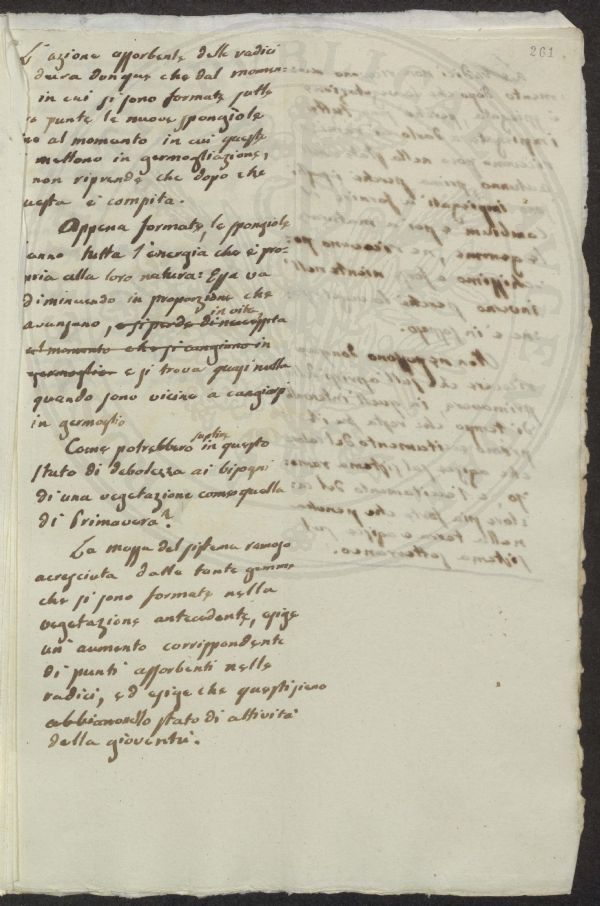 261
L'azione assorbente delle radici
dura donque che dal momen-
in cui si sono formate sulle
punte le nuove spongiole
al momento in cui queste
mettono in germogliazione,
non riprende che dopo che
uesta e compita.
Appena formate, le spongiole
anno tutta l'energia che è pro-
pria alla loro natura: Essa va
diminuendo in proporzione che
avanzano, in vita,
al momento che si cangiano in
germoglio e si trova quasi nulla
quando sono vicine a cangiarsi
in germoglio
Come potrebbero supplire in questo
stato di debolezza ai bisogni
di una vegetazione come quella
di Primavera?
La massa del sistema ramoso
acresciuta dalle tante gemme
che si sono formate nella
vegetazione antecedente, esige
un aumento corrispondente
di punti assorbenti nelle
radici, ed esige che questi sieno
abbiano nello stato di attività
della gioventù.